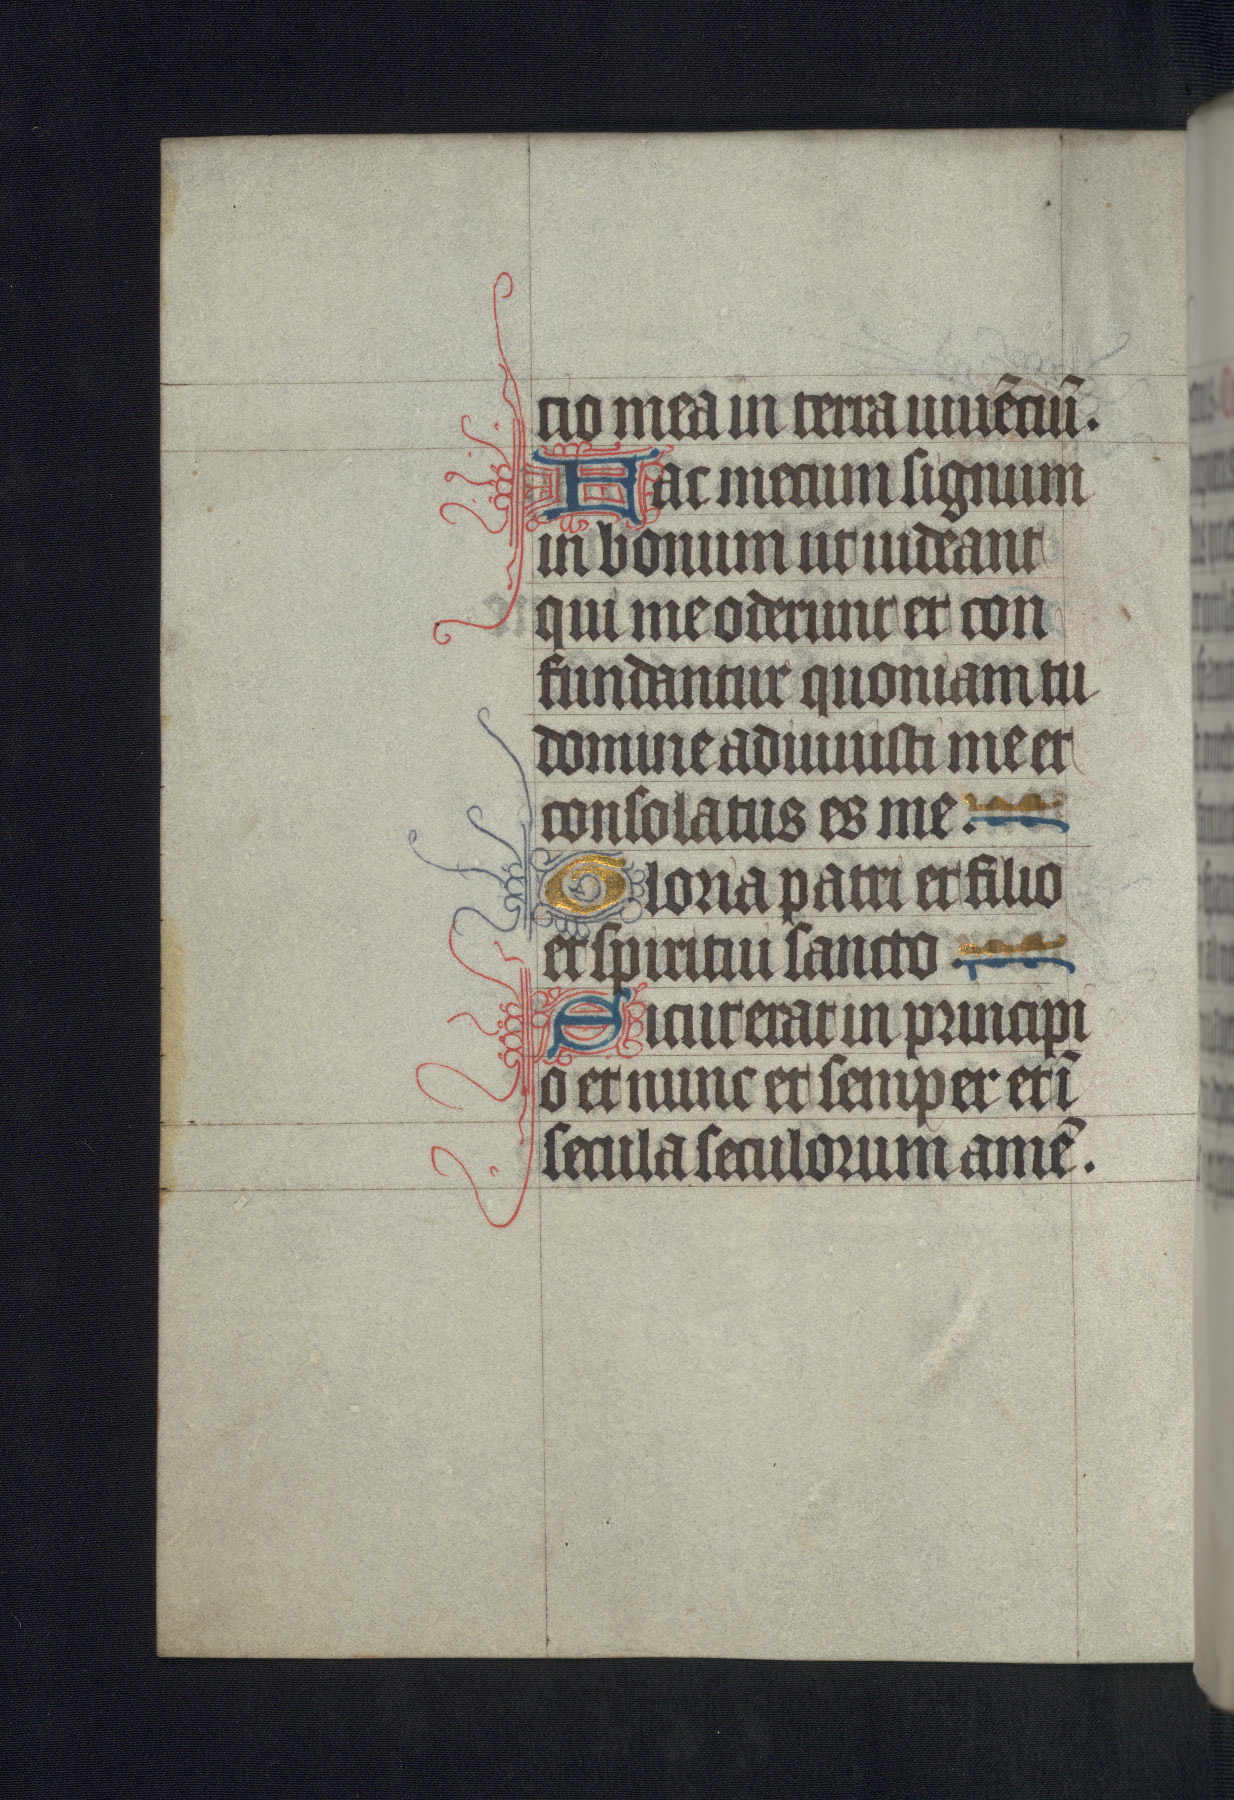 cio mea in terra uiuētiū.
Fac mecum signum
in bonum ut uideant
qui me oderunt et con
fundantur quoniam tu
domine adiuuisti me et
consolatus es me.
Gloria patri et filio
et spiritui sancto.
Sicut erat in principi
o et nunc et semper et ī
secula seculorum amē.